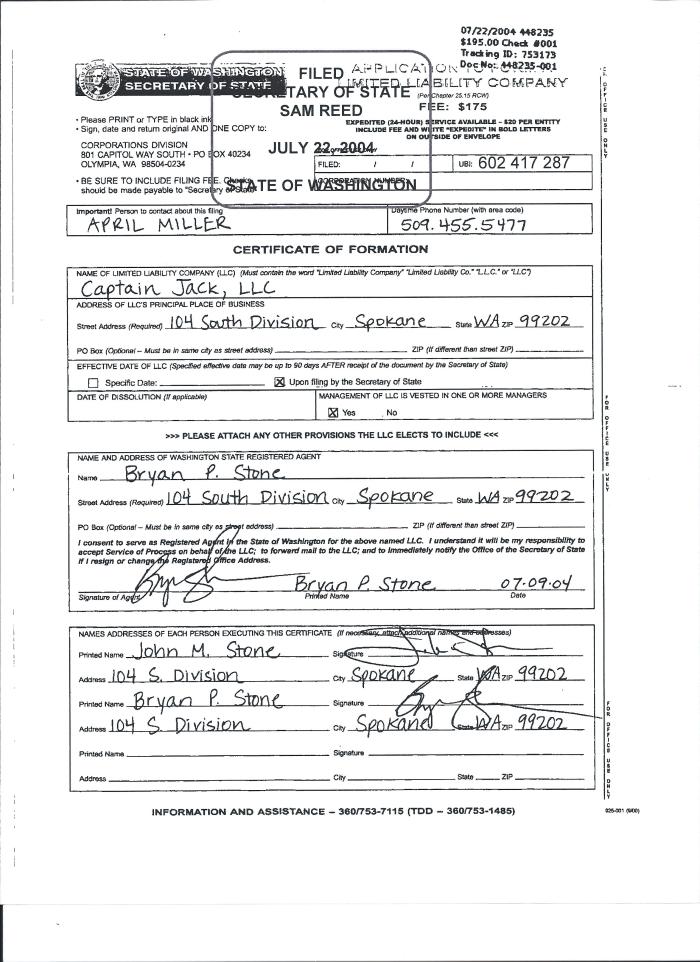 07/22/2004 448235
$195.00 Check #001
Tracking ID: 753173
Doc No: 448235-001
STATE OF WASHINGTON
SECRETARY OF STATE
FILED
SECRETARY OF STATE
SAM REED
JULY 22, 2004
STATE OF WASHINGTON
APPLICATION TO FORM
LIMITED LIABILITY COMPANY
(Per Chapter 25.15 RCW)
FEE: $175
• Please PRINT or TYPE in black ink
• Sign, date and return original AND ONE COPY to:
CORPORATIONS DIVISION
801 CAPITOL WAY SOUTH • PO BOX 40234
OLYMPIA, WA 98504-0234
• BE SURE TO INCLUDE FILING FEE. Checks
should be made payable to "Secretary of State"
EXPEDITED (24-HOUR) SERVICE AVAILABLE – $20 PER ENTITY
INCLUDE FEE AND WRITE "EXPEDITE" IN BOLD LETTERS
ON OUTSIDE OF ENVELOPE
FILED: / /
UBI: 602 417 287
CORPORATION NUMBER:
Important! Person to contact about this filing
APRIL MILLER
Daytime Phone Number (with area code)
509.455.5477
CERTIFICATE OF FORMATION
NAME OF LIMITED LIABILITY COMPANY (LLC) (Must contain the word "Limited Liability Company" "Limited Liability Co." "L.L.C." or "LLC")
Captain Jack, LLC
ADDRESS OF LLC'S PRINCIPAL PLACE OF BUSINESS
Street Address (Required) 104 South Division City Spokane State WA ZIP 99202
PO Box (Optional – Must be in same city as street address) ZIP (If different than street ZIP)
EFFECTIVE DATE OF LLC (Specified effective date may be up to 90 days AFTER receipt of the document by the Secretary of State)
Specific Date: Upon filing by the Secretary of State
DATE OF DISSOLUTION (If applicable)
MANAGEMENT OF LLC IS VESTED IN ONE OR MORE MANAGERS
Yes No
>>> PLEASE ATTACH ANY OTHER PROVISIONS THE LLC ELECTS TO INCLUDE <<<
NAME AND ADDRESS OF WASHINGTON STATE REGISTERED AGENT
Name Bryan P. Stone
Street Address (Required) 104 South Division City Spokane State WA ZIP 99202
PO Box (Optional – Must be in same city as street address) ZIP (If different than street ZIP)
I consent to serve as Registered Agent in the State of Washington for the above named LLC. I understand it will be my responsibility to
accept Service of Process on behalf of the LLC; to forward mail to the LLC; and to immediately notify the Office of the Secretary of State
if I resign or change the Registered Office Address.
Bryan P. Stone 07.09.04
Signature of Agent Printed Name Date
NAMES ADDRESSES OF EACH PERSON EXECUTING THIS CERTIFICATE (If necessary, attach additional names and addresses)
Printed Name John M. Stone Signature
Address 104 S. Division City Spokane State WA ZIP 99202
Printed Name Bryan P. Stone Signature
Address 104 S. Division City Spokane State WA ZIP 99202
Printed Name Signature
Address City State ZIP
INFORMATION AND ASSISTANCE – 360/753-7115 (TDD – 360/753-1485)
025-001 (9/00)
FOR OFFICE USE ONLY
FOR OFFICE USE ONLY
FOR OFFICE USE ONLY